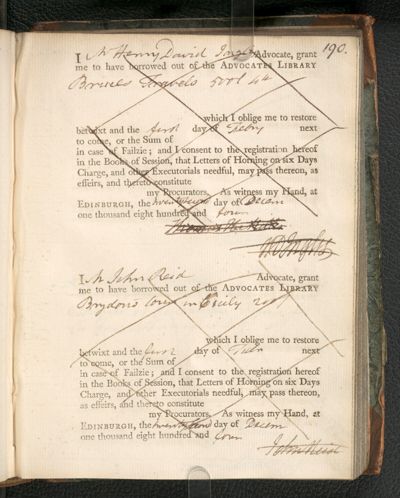 190.
I Mr Henry David Inglis Advocate, grant
me to have borrowed out of the ADVOCATES LIBRARY
Bruces Travels 5 vol 4to
which I oblige me to restore
betwixt and the first day of Febry next
to come, or the Sum of
in case of Failzie; and I consent to the registration hereof
in the Books of Session, that Letters of Horning on six Days
Charge, and other Executorials needful, may pass thereon, as
effeirs, and thereto constitute
my Procurators. As witness my Hand, at
EDINBURGH, the day of Decem
one thousand eight hundred and four
HD Inglis
I Mr John Reid Advocate, grant
me to have borrowed out of the ADVOCATES LIBRARY
Brydons tour in Sicily 2 vol
which I oblige me to restore
betwixt and the first day of next
to come, or the Sum of
in case of Failzie; and I consent to the registration hereof
in the Books of Session, that Letters of Horning on six Days
Charge, and other Executorials needful, may pass thereon, as
effeirs, and thereto constitute
my Procurators. As witness my Hand, at
EDINBURGH, the day of Decem
one thousand eight hundred and four
John Reid